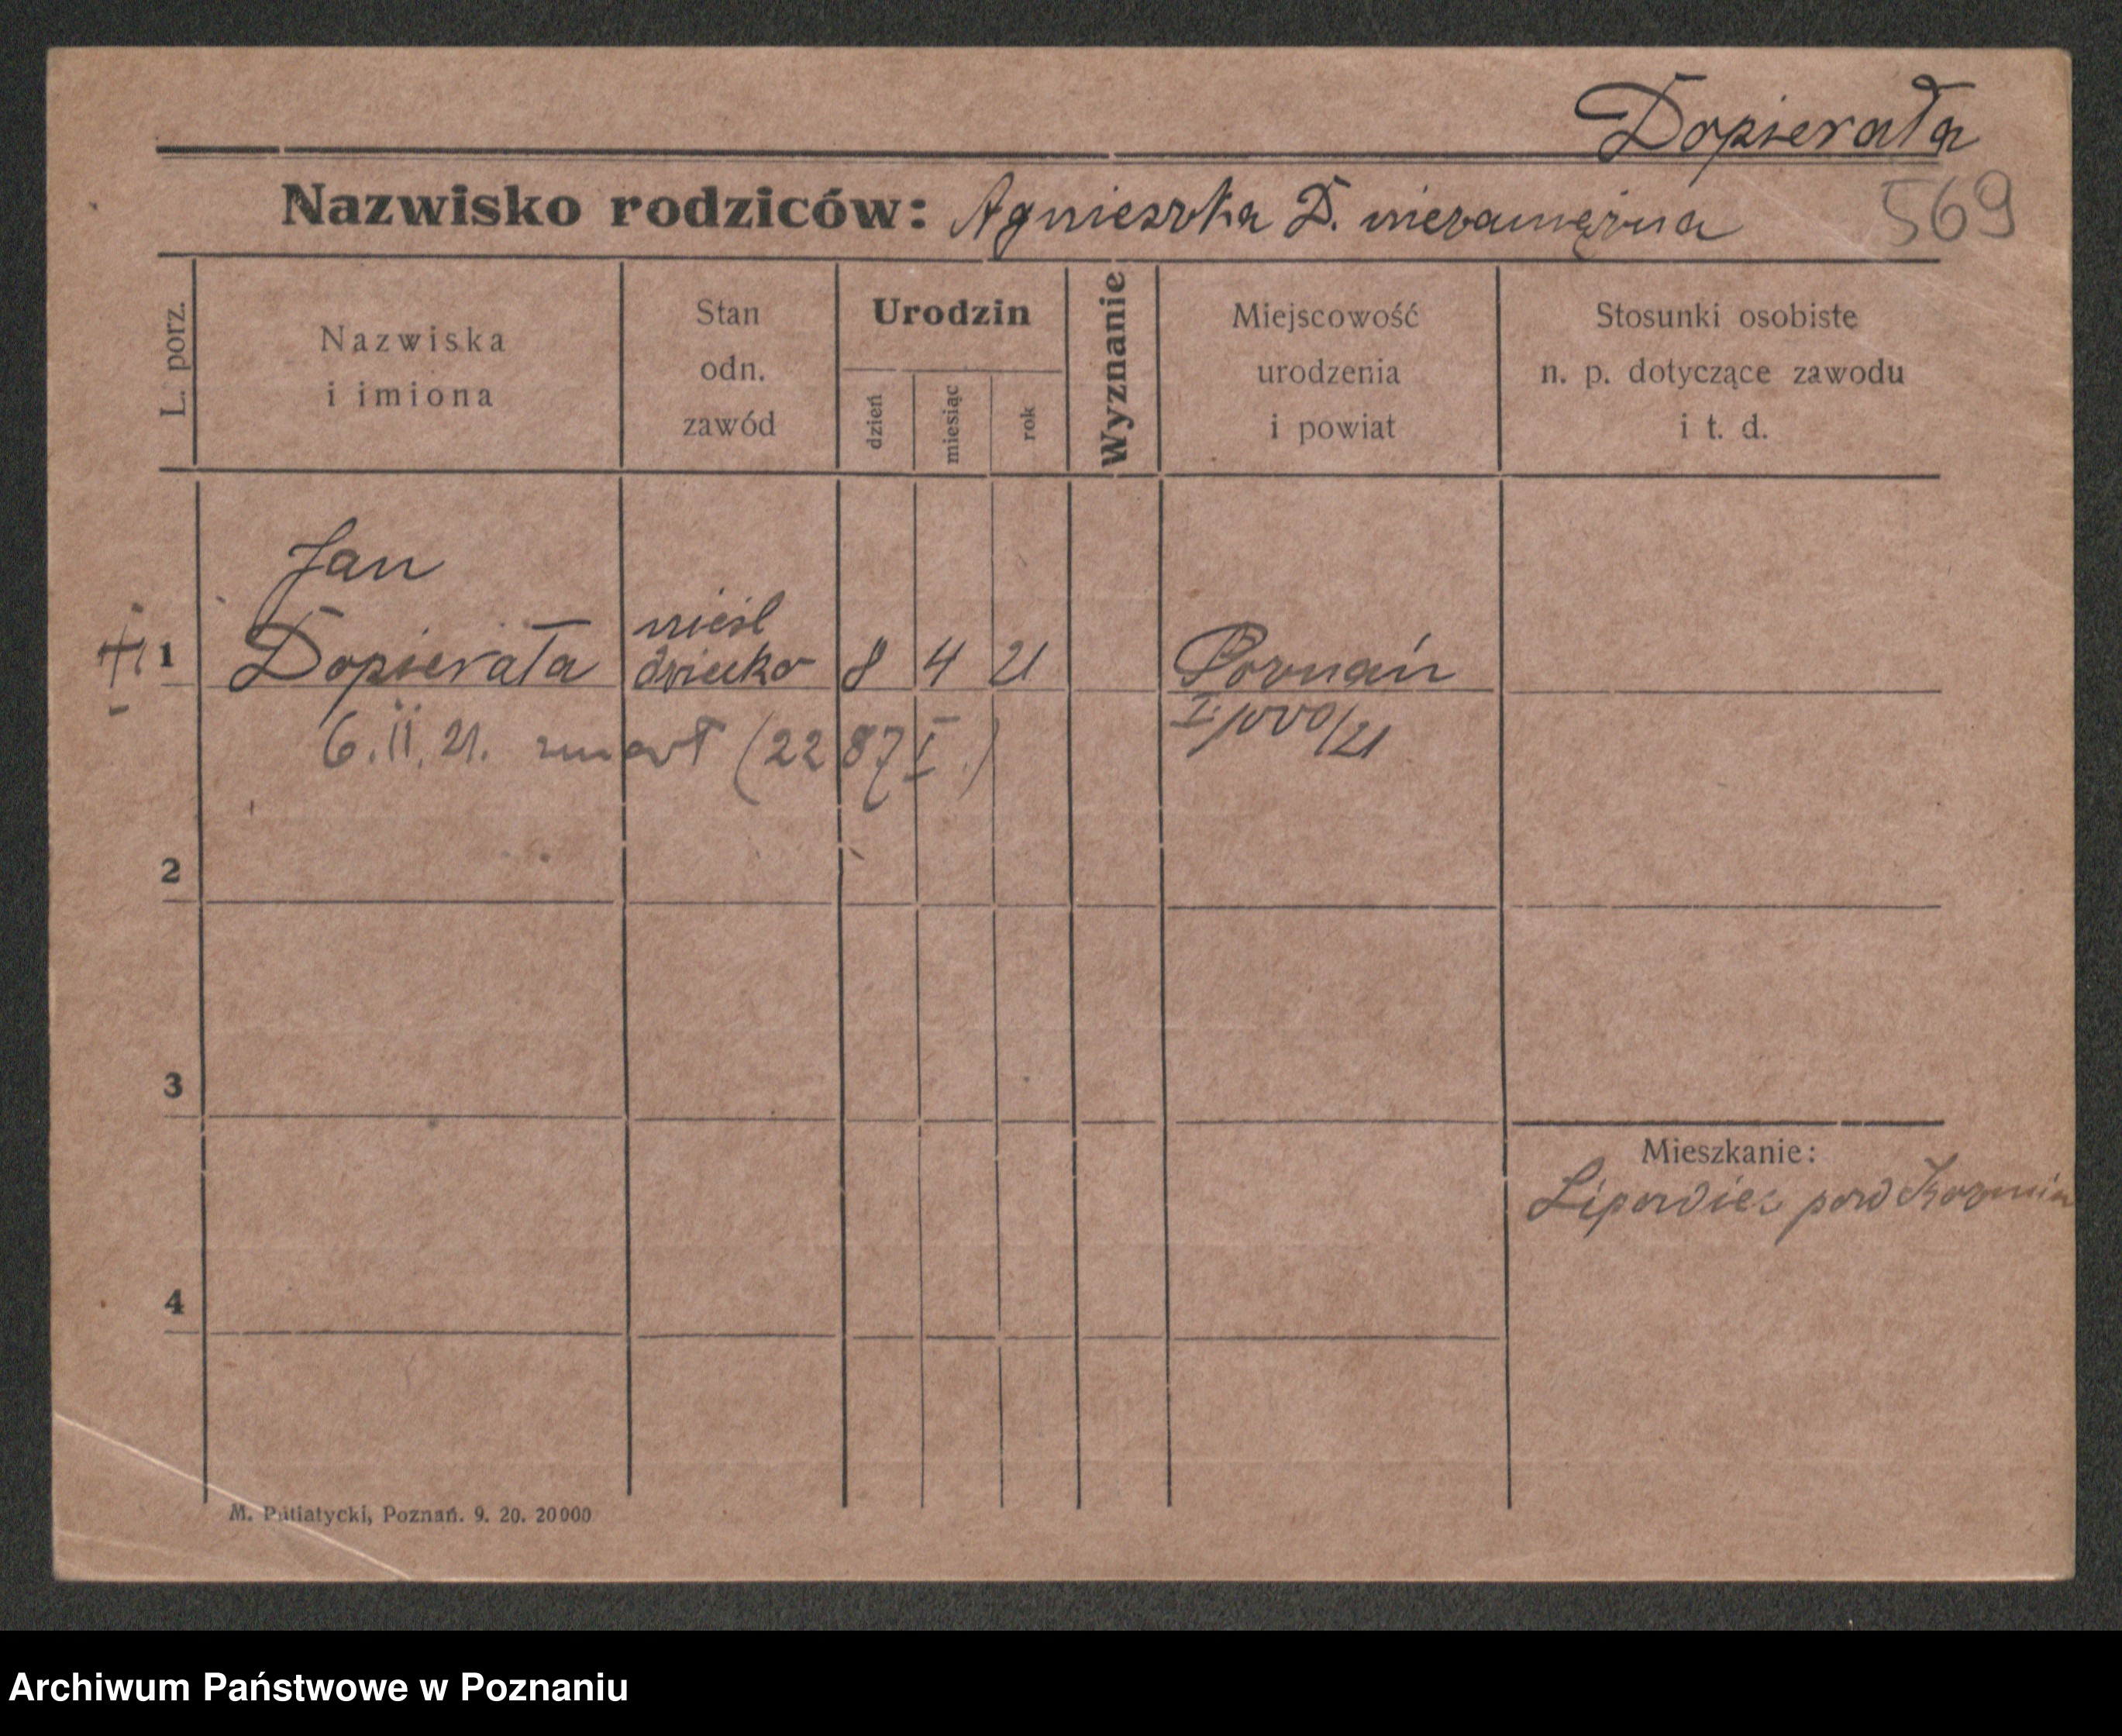 Dopierała
Nazwisko rodziców: Agnieszka D. niezamężna 569
L. porz.
Nazwiska
i imiona
Stan
odn.
zawód
Urodzin
dzień
miesiąc
rok
Wyznanie
Miejscowość
urodzenia
i powiat
Stosunki osobiste
n. p. dotyczące zawodu
i t. d.
Jan
nieśl
1 Dopierała dziecko 8 4 21 Poznań
6. 11. 21. zmarł (2287 I.) I 1000/21
2
3
Mieszkanie:
Lipowiec pow Kozmin
4
M. Putiatycki, Poznań. 9. 20. 20000
Archiwum Państwowe w Poznaniu